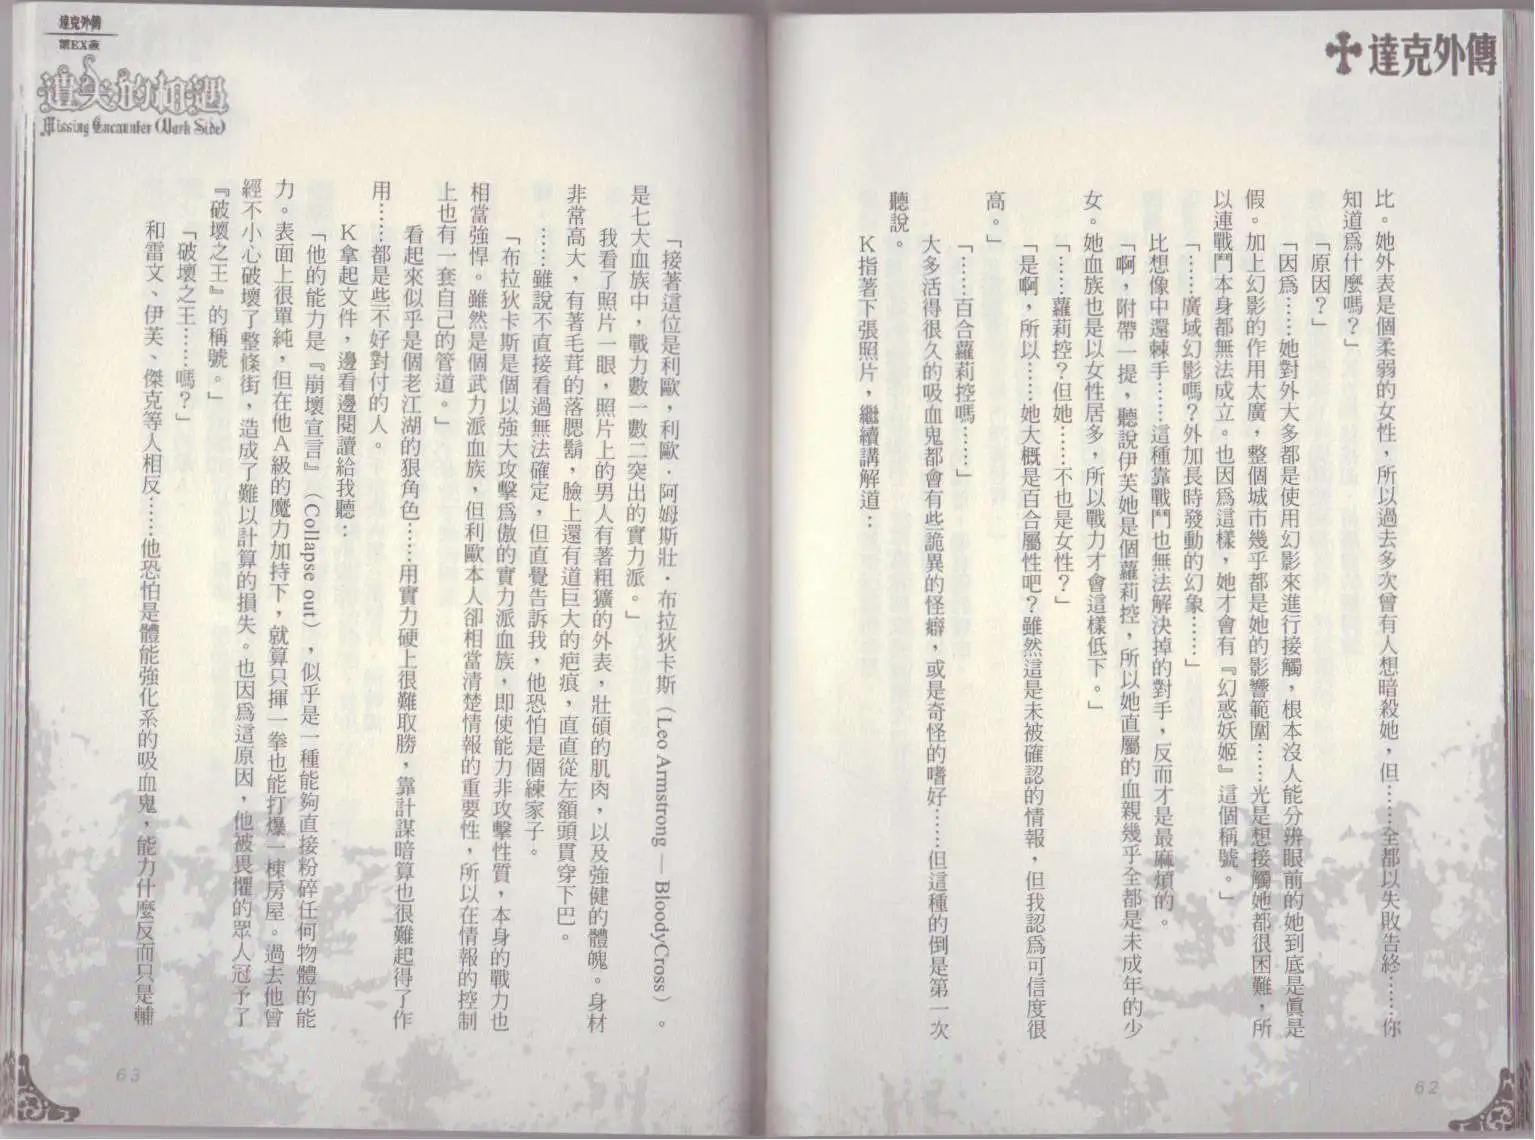 達克外傳
比。她外表是個柔弱的女性，所以過去多次曾有人想暗殺她，但……全都以失敗告終……你
知道為什麼嗎？」
「原因？」
「因為……她對外大多都是使用幻影來進行接觸，根本沒人能分辨眼前的她到底是真是
假。加上幻影的作用太廣，整個城市幾乎都是她的影響範圍……光是想接觸她都很困難，所
以連戰鬥本身都無法成立。也因為這樣，她才會有『幻惑妖姬』這個稱號。」
「……廣域幻影嗎？外加長時發動的幻象……」
比想像中還棘手……這種靠戰鬥也無法解決掉的對手，反而才是最麻煩的。
「啊，附帶一提，聽說伊芙她是個蘿莉控，所以她直屬的血親幾乎全都是未成年的少
女。她血族也是以女性居多，所以戰力才會這樣低下。」
「……蘿莉控？但她……不也是女性？」
「是啊，所以……她大概是百合屬性吧？雖然這是未被確認的情報，但我認為可信度很
高。」
「……百合蘿莉控嗎……」
大多活得很久的吸血鬼都會有些詭異的怪癖，或是奇怪的嗜好……但這種的倒是第一次
聽說。
K指著下張照片，繼續講解道：
62
達克外傳
第EX章
遺失的相遇
Missing Encounter (Dark Side)
「接著這位是利歐，利歐．阿姆斯壯．布拉狄卡斯（Leo Armstrong — BloodyCross）。
是七大血族中，戰力數一數二突出的實力派。」
我看了照片一眼，照片上的男人有著粗獷的外表，壯碩的肌肉，以及強健的體魄。身材
非常高大，有著毛茸的落腮鬍，臉上還有道巨大的疤痕，直直從左額頭貫穿下巴。
……雖說不直接看過無法確定，但直覺告訴我，他恐怕是個練家子。
「布拉狄卡斯是個以強大攻擊為傲的實力派血族，即使能力非攻擊性質，本身的戰力也
相當強悍。雖然是個武力派血族，但利歐本人卻相當清楚情報的重要性，所以在情報的控制
上也有一套自己的管道。」
看起來似乎是個老江湖的狠角色……用實力硬上很難取勝，靠計謀暗算也很難起得了作
用……都是些不好對付的人。
K拿起文件，邊看邊閱讀給我聽：
「他的能力是『崩壞宣言』（Collapse out），似乎是一種能夠直接粉碎任何物體的能
力。表面上很單純，但在他A級的魔力加持下，就算只揮一拳也能打爆一棟房屋。過去他曾
經不小心破壞了整條街，造成了難以計算的損失。也因為這原因，他被畏懼的眾人冠予了
『破壞之王』的稱號。」
「破壞之王……嗎？」
和雷文、伊芙、傑克等人相反……他恐怕是體能強化系的吸血鬼，能力什麼反而只是輔
63